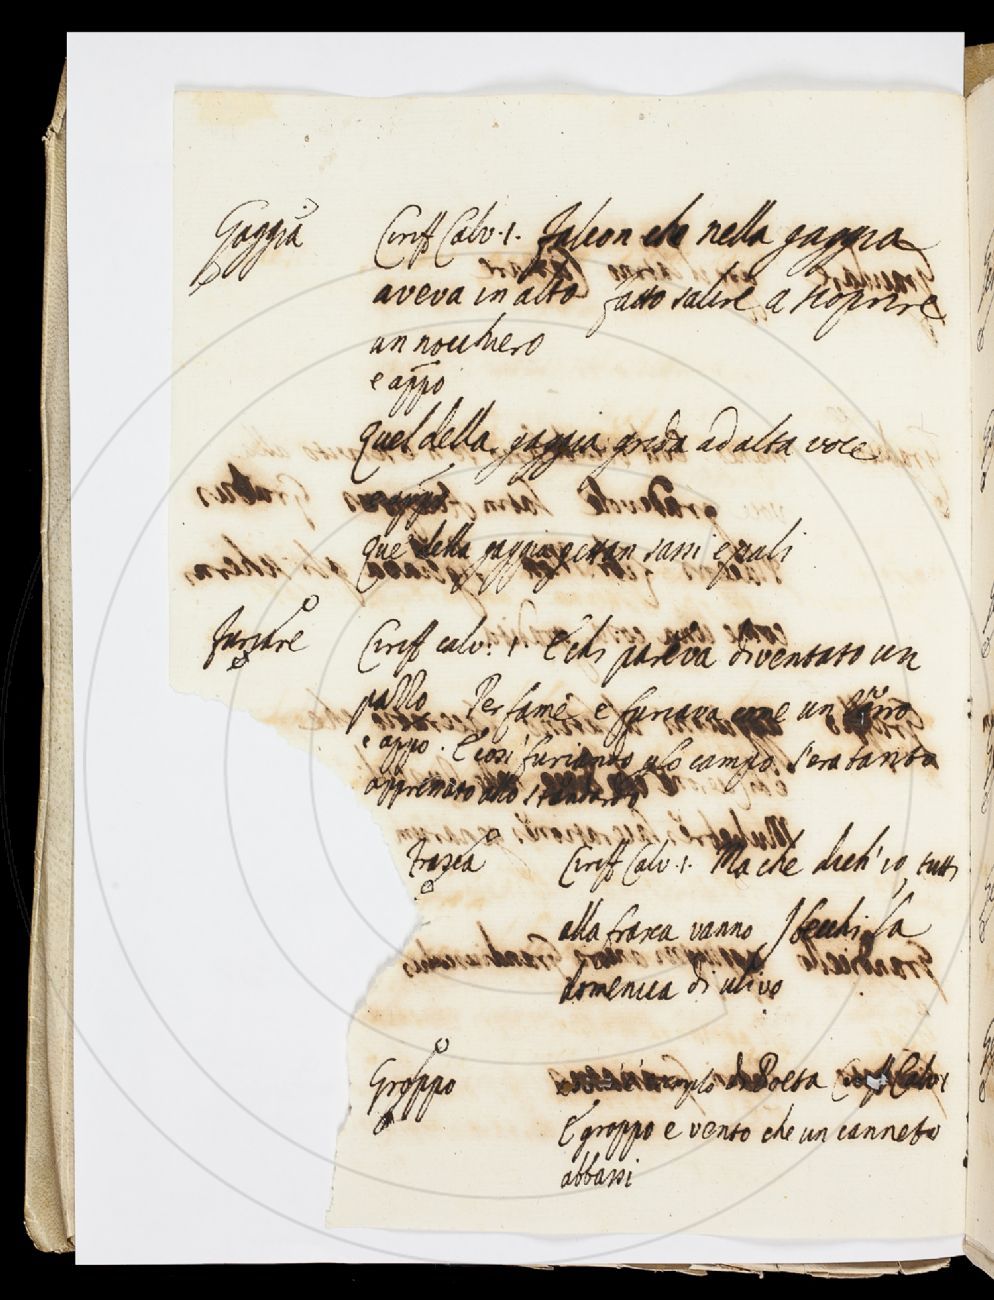 Gaggia
Ciriff Calv. 1. Falcon che nella gaggia
aveva in alto fatto salire a scoprire
un nocchiero
e appo
quel della gaggia grida ad alta voce
e appo
que della gaggia gettan sassi e pali
furiare
Ciriff calv. 1 E chi pareva diventato un
pazzo Per fame e furiava come un
e appo. E così furiando p lo campo s'era tanto
appressato allo stendardo
frasca
Ciriff Calv. 1. Ma che dich'io, tutti
alla frasca vanno I becchi la
domenica di ulivo
Groppo
di Poeta Ciriff Calv. 1
E groppo e vento che un canneto
abbassi